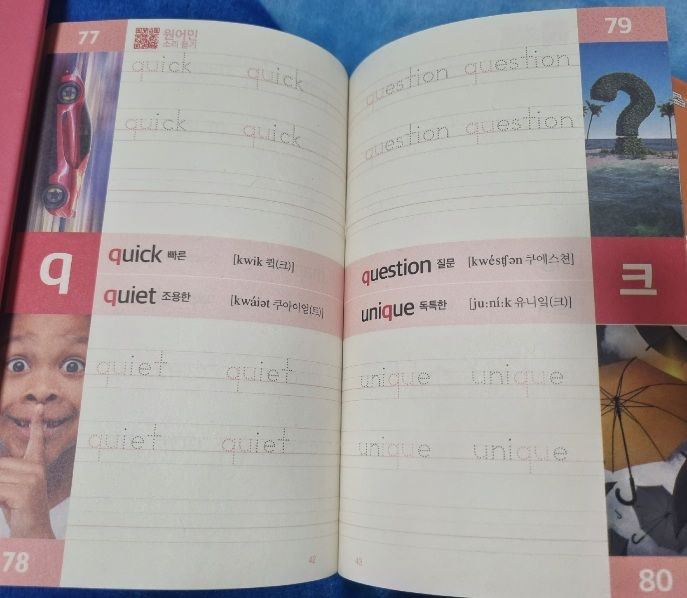 77
원어민
소리 듣기
quick quick
quick quick
q
quick 빠른 [kwik 퀵(크)]
quiet 조용한 [kwáiət 쿠아이엍(트)]
quiet quiet
quiet quiet
78
42
79
question question
question question
question 질문 [kwéstʃən 쿠에스천]
unique 독특한 [ju:ní:k 유니잌(크)]
크
unique unique
unique unique
43
80